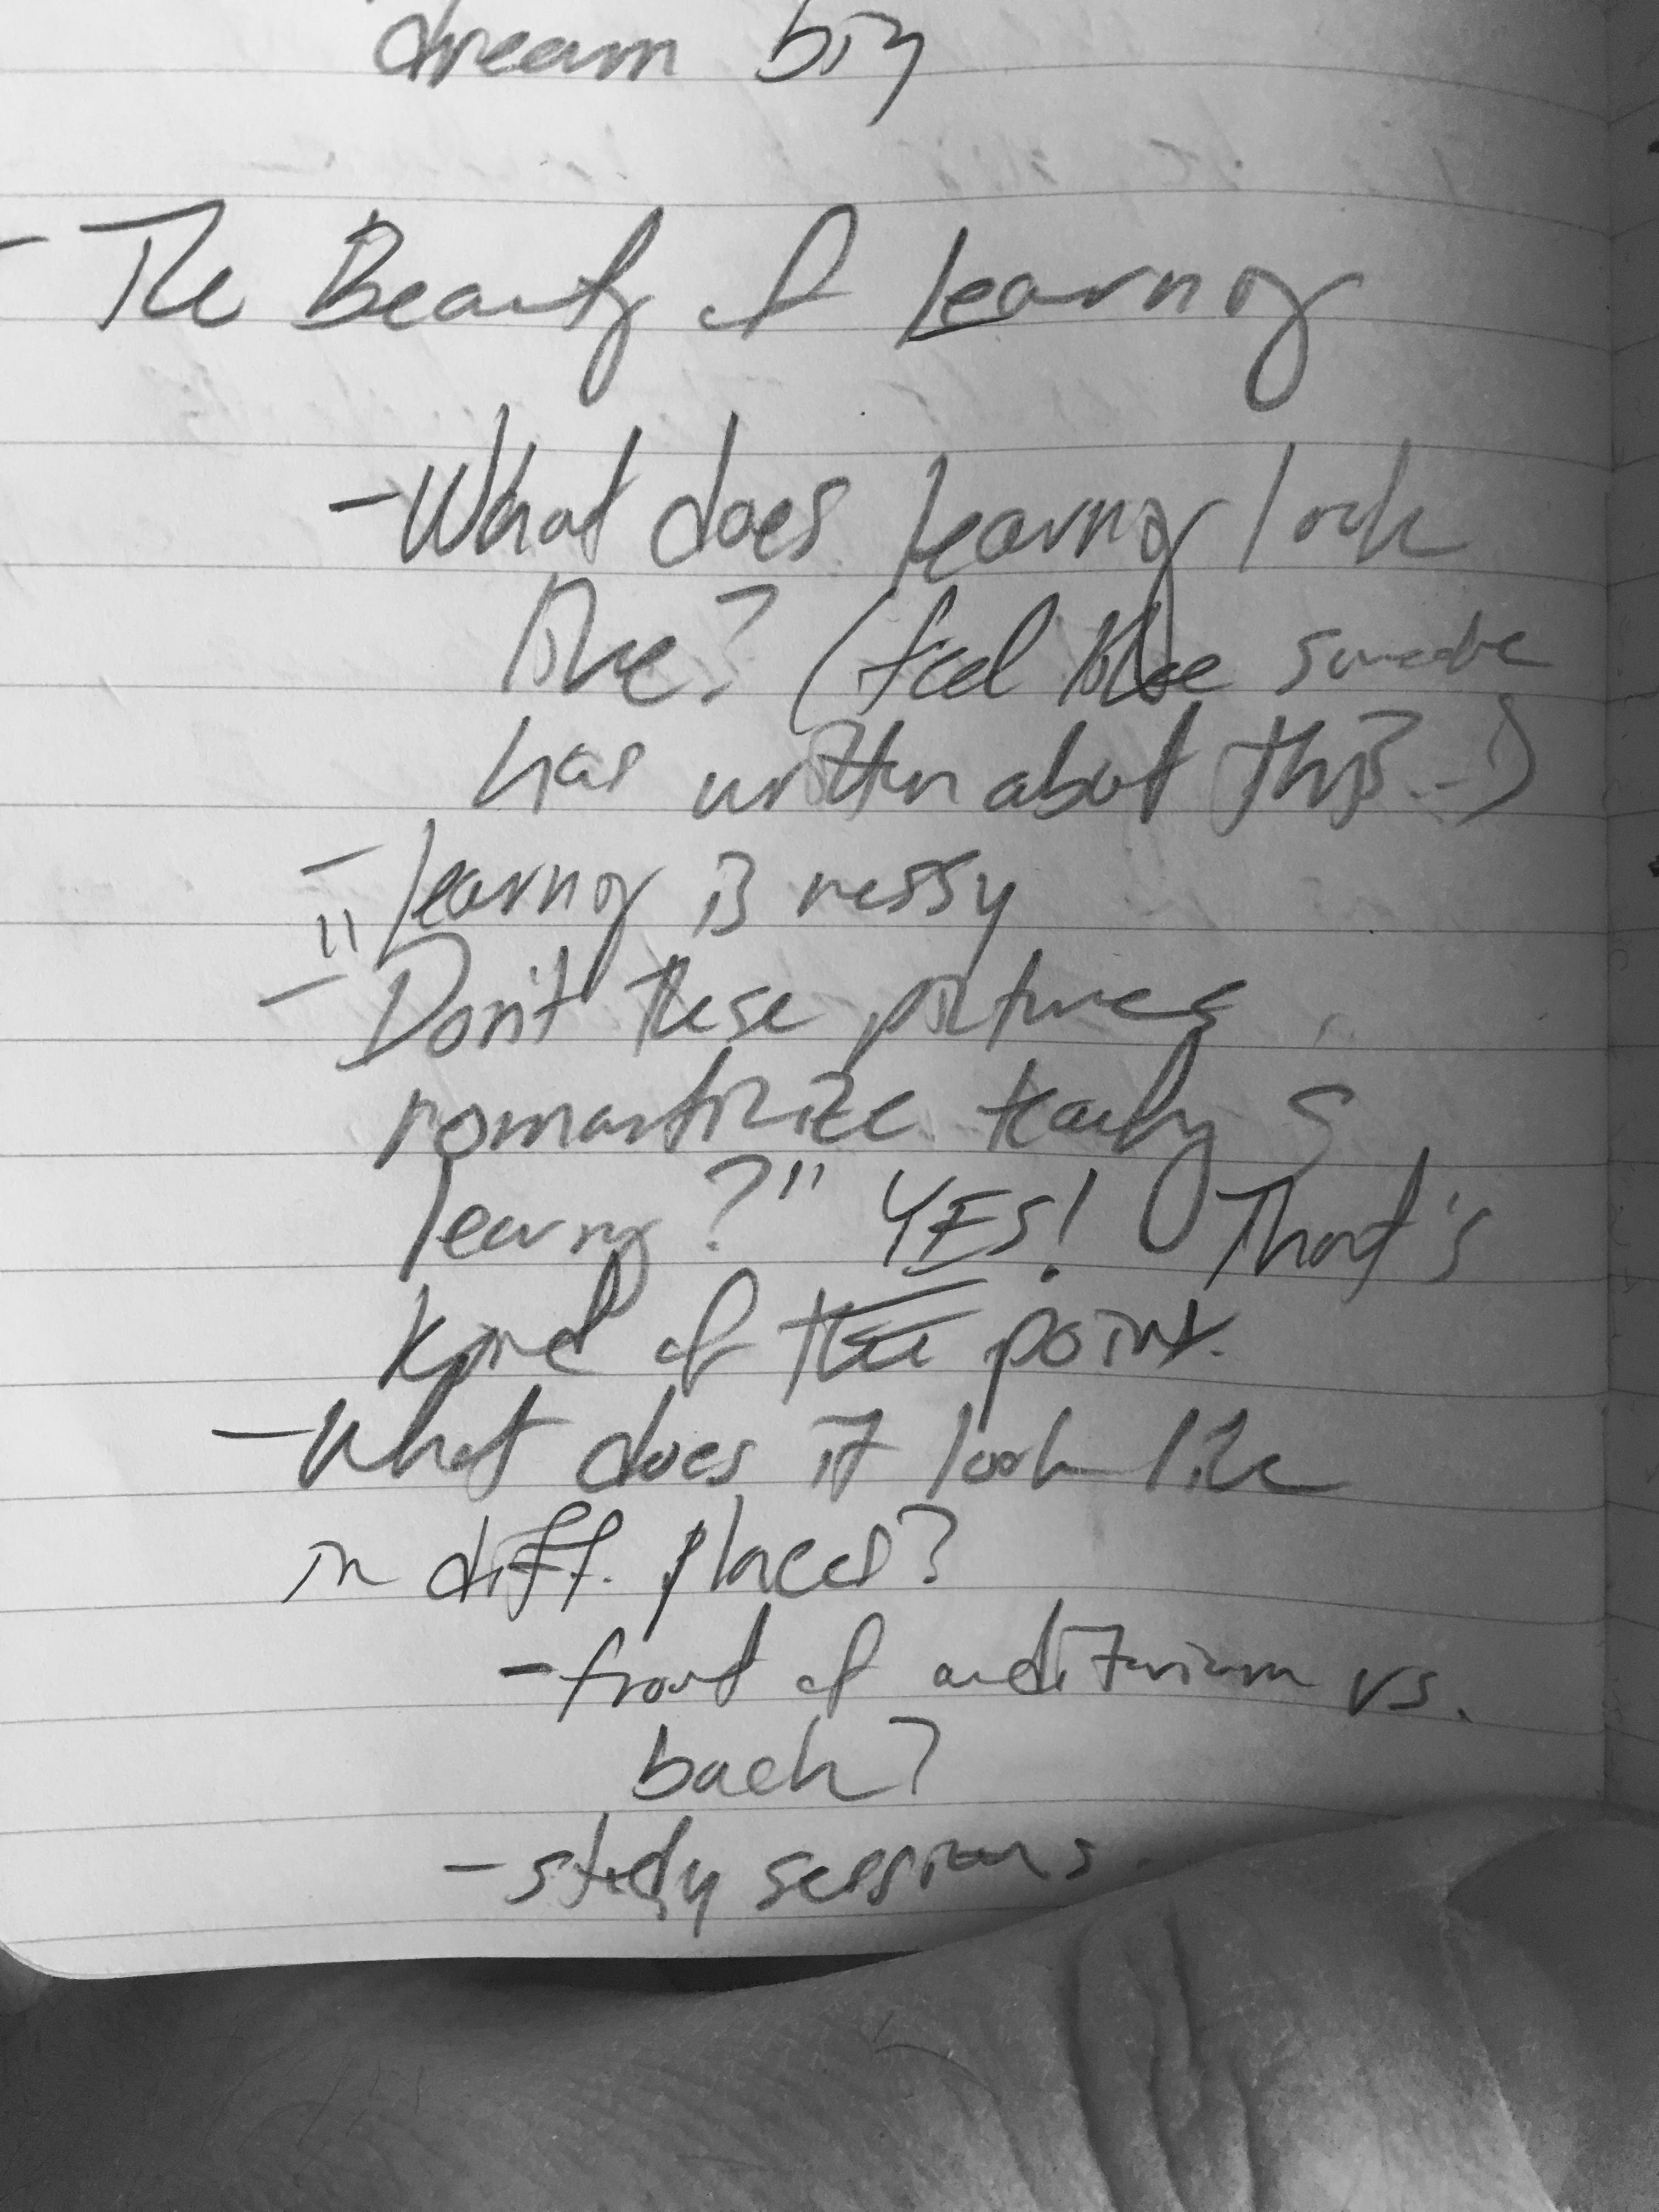 dream big
- The Beauty of Learning
- What does learning look
like? (feel like someone
has written about this...)
- learning is messy
- "Don't these pictures
romanticize teaching &
learning?" YES! That's
kind of the point.
- What does it look like
in diff. places?
- front of auditorium vs.
back?
- study sessions.